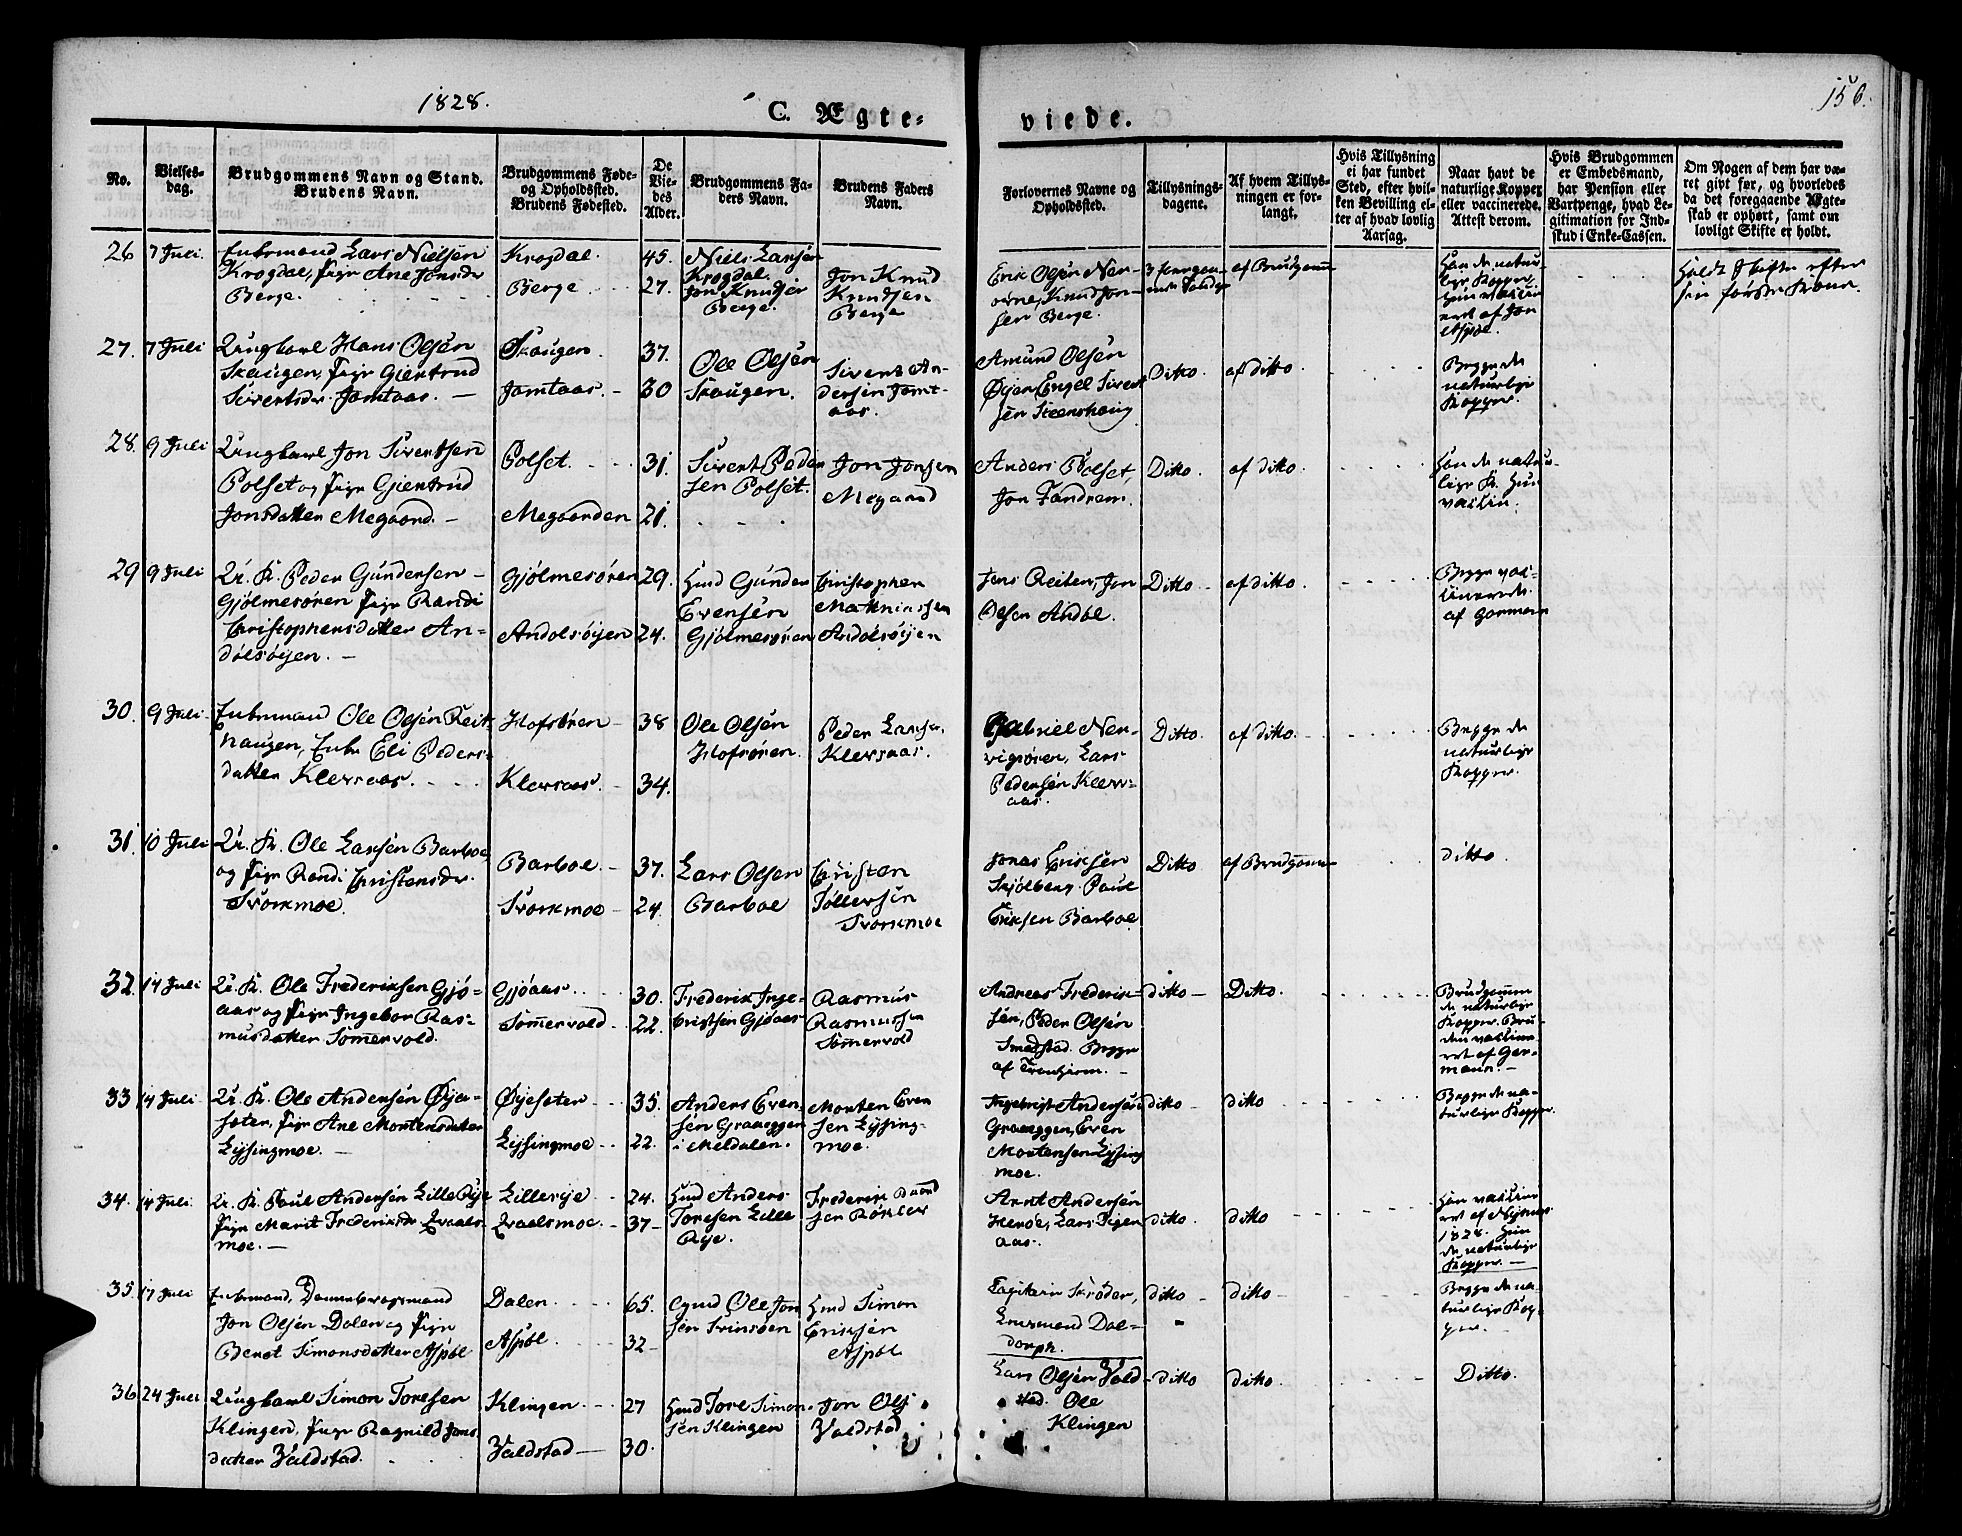 1828.
C. Ægte-
viede.
156.
No.
Vielses-
dag.
Brudgommens Navn og Stand.
Brudens Navn.
Brudgommens Føde-
og Opholdssted.
Brudens Fødested.
De
Vie-
des
Alder.
Brudgommens Fa-
ders Navn.
Brudens Faders
Navn.
Forlovernes Navne og
Opholdsted.
Tillysnings-
dagene.
Af hvem Tillys-
ningen er for-
langt.
Hvis Tillysning
ei har fundet
Sted, efter hvil-
ken Bevilling el-
ler af hvad lovlig
Aarsag.
Naar havt de
naturlige Kopper
eller vaccinerede.
Attest derom.
Hvis Brudgommen
er Embedsmand,
har Pension eller
Vartpenge, hvad Le-
gitimation for Ind-
skud i Enke-Cassen.
Om Nogen af dem har væ-
ret gift før, og hvorledes
da det foregaaende Ægte-
skab er ophørt, samt om
lovligt Skifte er holdt.
26
7 Juli.
Enkemand Lars Nielsen
Krogdal, Pige Ane Jonsdr
Berge.
Krogdal.
Berge
45.
27.
Niels Larsen
Krogdal.
Jon Knudsen
Berge.
Jon Knud
Knudsen
Berge
Erik Olsen
Knud Jon-
sen Berge.
af Brudgom
Han de natur-
lige Kopper
Hun vaccin
eret af Jon
Aspøe.
Holdt Skifte efter
sin første Kone.
27.
7 Juli
Ungkarl Hans Olsen
Skaugen, Pige Giertrud
Sivertsdr. Jamtaas.
Skaugen.
Jamtaas.
37.
30
Ole Olsen
Skaugen.
Sivert An-
dersen Jamt-
aas.
Amund Olsen
Øien Engel Sivert
sen Steenshaug
Ditto.
af ditto.
Begge de
naturlige
Kopper.
28.
9 Juli
Ungkarl Jon Sivertsen
Polset og Pige Giertrud
Jonsdatter Megaard.
Polset.
Megaarden
31.
21.
Sivert Peder
sen Polset.
Jon Jonsen
Megaard
Anders Polset,
Jon Fandrem.
Ditto
af ditto.
Han de natur-
lige K. Hun
vaccin.
29
9 Juli
U. K. Peder Gundersen
Gjølmesøren Pige Randi
Christophersdatter An-
dølsøyen.
Gjølmesøren
Andolsøyen
29.
24.
Husmd Gunder
Evensen
Gjølmesøren
Christopher
Mathiassen
Andolsøyen
Jens Reiten, Jon
Olsen Andøl.
Ditto
af ditto.
Begge vac-
cinerede
af Gorman
30.
9 Juli
Enkemand Ole Olsen Reit
haugen, Enke Eli Peders-
datter Klevsaas.
Hofsøren
Klevsaas.
38
34.
Ole Olsen
Hofsøren.
Peder Larsen
Klevsaas.
Gabriel Ner-
vigsøren, Lars
Pedersen Klevs-
aas.
Ditto.
af ditto.
Begge de
naturlige
Kopper.
31.
10 Juli
U. K. Ole Larsen Barboe
og Pige Randi Christensdr.
Svorkmoe.
Barboe.
Svorkmoe
37.
24.
Lars Olsen
Barboe
Christen
Tøllersen
Svorkmoe
Jonas Eriksen
Skjølberg. Paul
Eriksen Barboe
Ditto
af Brudgomm
ditto.
32.
14 Juli
U. K. Ole Frederiksen Gjø-
aas og Pige Ingebor Ras-
musdatter Sommervold.
Gjøaas
Sommervold
30.
22.
Frederik Inge-
brictsen Gjøaas
Rasmus
Rasmussen
Sommervold
Andreas Frederik-
sen, Peder Olsen
Smedstad. Begge
af Tronhiem.
ditto
Ditto.
Brudgomm
de naturlige
Kopper. Bru-
den vaccine-
ret af Gor-
mann.
33
14 Juli
U. K. Ole Andersen Øye-
sæter, Pige Ane Mortensdatter
Lyssingmoe.
Øyesæter
Lyssingmoe
35.
22.
Anders Even-
sen Graaeggen
i Meldalen.
Morten Even
sen Lyssing-
moe.
Ingebrigt Andersen
Graaeggen, Even
Mortensen Lyssing
moe.
ditto
ditto
Begge de na-
turlige Kopper.
34.
14 Juli
U. K. Paul Andersen Lille Rye
Pige Marit Frederiksdr Qvaals
moe.
Lillerye
Qvaalsmoe.
24.
37
Husmd Anders
Toresen Lille
Rye.
Frederik Baard
sen Røkler
Arnt Andersen
Lars Pigen
aas.
ditto.
ditto
Han vaccine
ret af
1828. Hun
de naturlige
Kopper.
35.
17 Juli
Enkemand, Dannebrogsmand
Jon Olsen Dalen og Pige
Beret Simonsdatter Aspøl
Dalen
Aspøl
65.
32
Ole Jon
sen Svinsøen
Husmd Simon
Eriksen
Aspøl
Capitain Skrøder,
Lensmand Dal-
dorph.
ditto
ditto
Begge de na-
turlige Kop-
per.
36
24 Juli
Ungkarl Simon Toresen
Klingen, Pige Ragnild Jons
datter Valdstad.
Klingen
Valdstad
27
30.
Husmd Tore Simon-
sen Klingen
Jon Ols
Valdstad
Lars Olsen Vald
stad. Ole
Klingen
ditto
ditto.
Ditto.